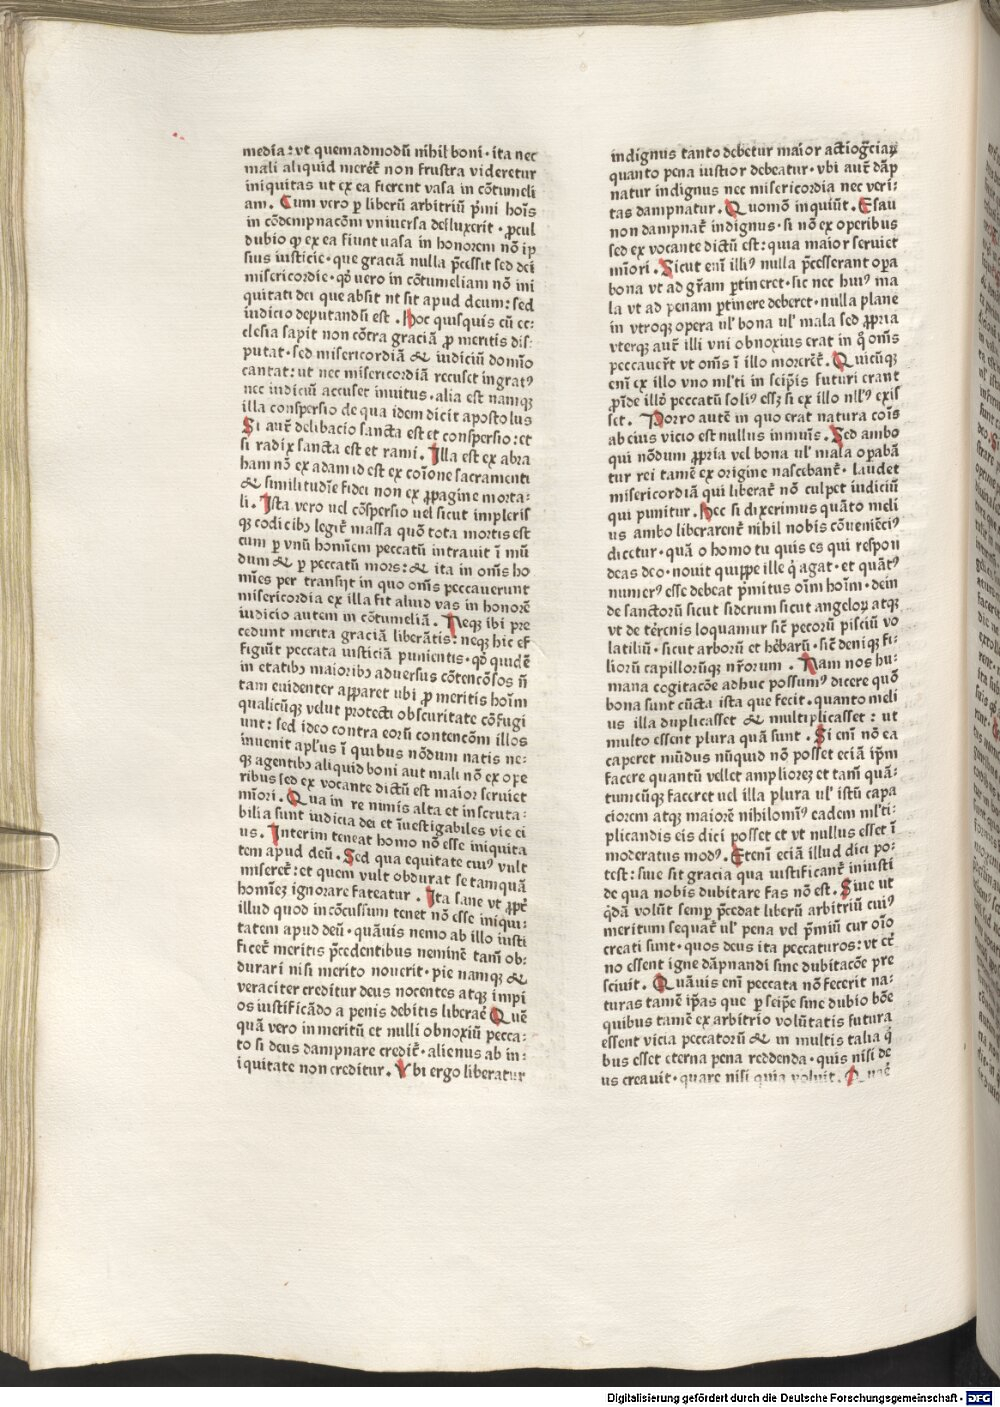 media: vt quemadmodū nihil boni · ita nec
mali aliquid mereret̄ non frustra videretur
iniquitas ut ex ea fierent vasa in cōtumeli
am . Cum vero ꝑ liberū arbitriū pͥmi hoīs
in cōdempnacōm vniuersa defluxerit · ꝓcul
dubio ꝙ ex ea fiunt uasa in honorem nō ip
sius iusticie · que graciā nulla p̄cessit sed dei
misericordie · qd̕ uero in cōtumeliam nō ini
quitati dei que absit nt sit apud deum: sed
iudicio deputandū est . Hoc quisquis cū ec-
clesia sapit non cōtra graciā ꝓ meritis dis-
putat · sed misericordiā & iudiciū domīo
cantat: ut nec misericordiā recuset ingratꝰ
nec iudiciū accuset inuitus · alia est namqꝫ
illa conspersio de qua idem dicit apostolus
Si aut̄ delibacio sancta est et conspersio: et
si radix sancta est et rami . Illa est ex abra
ham nō ex adam id est ex cōione sacramenti
& similitudīe fidei non ex ꝓpagine morta-
li . Ista vero uel cōspersio uel sicut in pleris
qꝫ codicibꝫ legit̄ massa quō tota mortis est
cum ꝑ vnū hominem peccatū intrauit ī mū
dum & ꝑ peccatū mors: & ita in om̄s ho
mīes per transijt in quo om̄s peccauerunt
misericordia ex illa fit aliud vas in honorē
iudicio autem in cōtumeliā . Neqꝫ ibi pre
cedunt merita graciā liberātis: neqꝫ hic ef
figiūt peccata iusticiā punientis · qd̕ quidē
in etatibꝫ maioribꝫ aduersus cōtencōsos n̄
tam euidenter apparet ubi ꝓ meritis hoīm
qualicūqꝫ velut protecti obscuritate cōfugi
unt: sed ideo contra eorū contencōm illos
inuenit apl'us ī quibus nōdum natis ne-
qꝫ agentibꝫ aliquid boni aut mali nō ex ope
ribus sed ex vocante dictū est maior seruiet
mīori . Qua in re nimis alta et inscruta-
bilia sunt iudicia dei et īuestigabiles vie ei
us . Interim teneat homo nō esse iniquita
tem apud deū . Sed qua equitate cuiꝰ vult
miseret̄: et quem vult obdurat se tamquā
homīeꝫ ignorare fateatur . Ita sane vt ꝓpt̄
illud quod incōcussum tenet nō esse iniqui-
tatem apud deū · quāuis nemo ab illo iusti
ficet̄ meritis p̄cedentibus neminē tam̄ ob-
durari nisi merito nouerit · pie namqꝫ &
veraciter creditur deus nocentes atqꝫ impi
os iustificādo a penis debitis liberaē Quē
quā vero inmeritū et nulli obnoxiū pecca-
to si deus dampnare credit̄ · alienus ab in-
iquitate non creditur . Vbi ergo liberatur
indignus tanto debetur maior actiogr̄ciaꝝ
quanto pena iustior debeatur · vbi aut̄ dāp
natur indignus nec misericordia nec veri-
tas dampnatur . Quomō inquiūt . Esau
non dampnat̄ indignus · si nō ex operibus
sed ex vocante dictū est: quia maior seruiet
mīori . Sicut enī illiꝰ nulla p̄cesserant opa
bona vt ad gr̄am ꝑtineret · sic nec huiꝰ ma
la vt ad penam ꝑtinere deberet · nulla plane
in vtroqꝫ opera ul' bona ul' mala sed ꝓpria
vterqꝫ aut̄ illi vni obnoxius erat in q̊ om̄s
peccauert̄ vt om̄s ī illo morerēt̄ . Quicūqꝫ
enī ex illo vno ml'ti in seip̄is futuri erant
ꝓīde illꝰ peccatū soliꝰ esseꝫ si ex illo nll'ꝰ exis
set . Porro autē in quo erat natura cōis
ab eius vicio est nullus inmunis . Sed ambo
qui nōdum ꝓpria vel bona ul' mala opabā
tur rei tamē ex origine nascebant̄ · laudet
misericordiā qui liberat̄ nō culpet iudiciū
qui punitur . Hec si dixerimus quāto meli
us ambo liberarent̄ nihil nobis cōueniēciꝰ
dicetur · quā o homo tu quis es qui respon
deas deo · nouit quippe ille qͥ agat · et quātꝰ
numerꝰ esse debeat pͥmitus oīm hoīm · dein
de sanctorū sicut siderum sicut angeloꝝ atqꝫ
vt de terrenis loquamur sic̄ pecorū pisciū vo
latiliū · sicut arborū et hēbarū · sic̄ deniqꝫ fi-
liorū capillorūqꝫ nr̄orum . Nam nos hu-
mana cogitacōe adhuc possumꝰ dicere quō
bona sunt cūcta ista que fecit · quanto meli
us illa duplicasset & multiplicasset: ut
multo essent plura quā sunt . Si enī nō ea
caperet mūdus nūquid nō posset eciā ip̄m
facere quantū vellet ampliorez et tam̄ quā-
tumcūqꝫ faceret uel illa plura ul' istū capa
ciorem atqꝫ maiorē nihilomīꝰ eadem ml'ti-
plicandis eis dici posset et vt nullus esset ī
moderatus modꝰ . Etenī eciā illud dici po-
test: siue sit gracia qua iustificant̄ iniusti
de qua nobis dubitare fas nō est . Siue ut
qͥdā volūt semꝑ p̄cedat liberū arbitriū cuiꝰ
meritum sequat̄ ul' pena vel p̄miū cur oīo
creati sunt · quos deus ita peccaturos: vt et̄
no essent igne dāpnandi sine dubitacōe pre
sciuit . Quāuis enī peccata nō fecerit na-
turas tamē ip̄as que ꝑ seip̄e sine dubio bōe
quibus tamē ex arbitrio volūtatis futura
essent vicia peccatorū & in multis talia qͥ
bus esset eterna pena reddenda · quis nisi de
us creauit · quare nisi quia voluit . Quaē